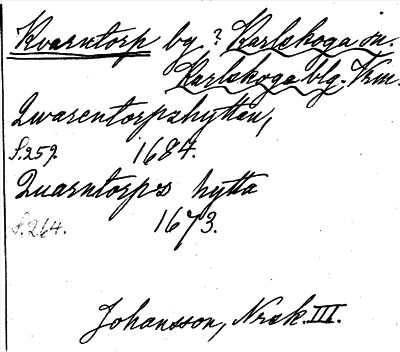 Kvarntorp by? Karlskoga sn.
Karlskoga blg. Vrm.
Qwarentorpzhyttan,
S.259. 1684.
Quarntorps hytta
S.264. 1673.
Johansson, Nrsk. III.